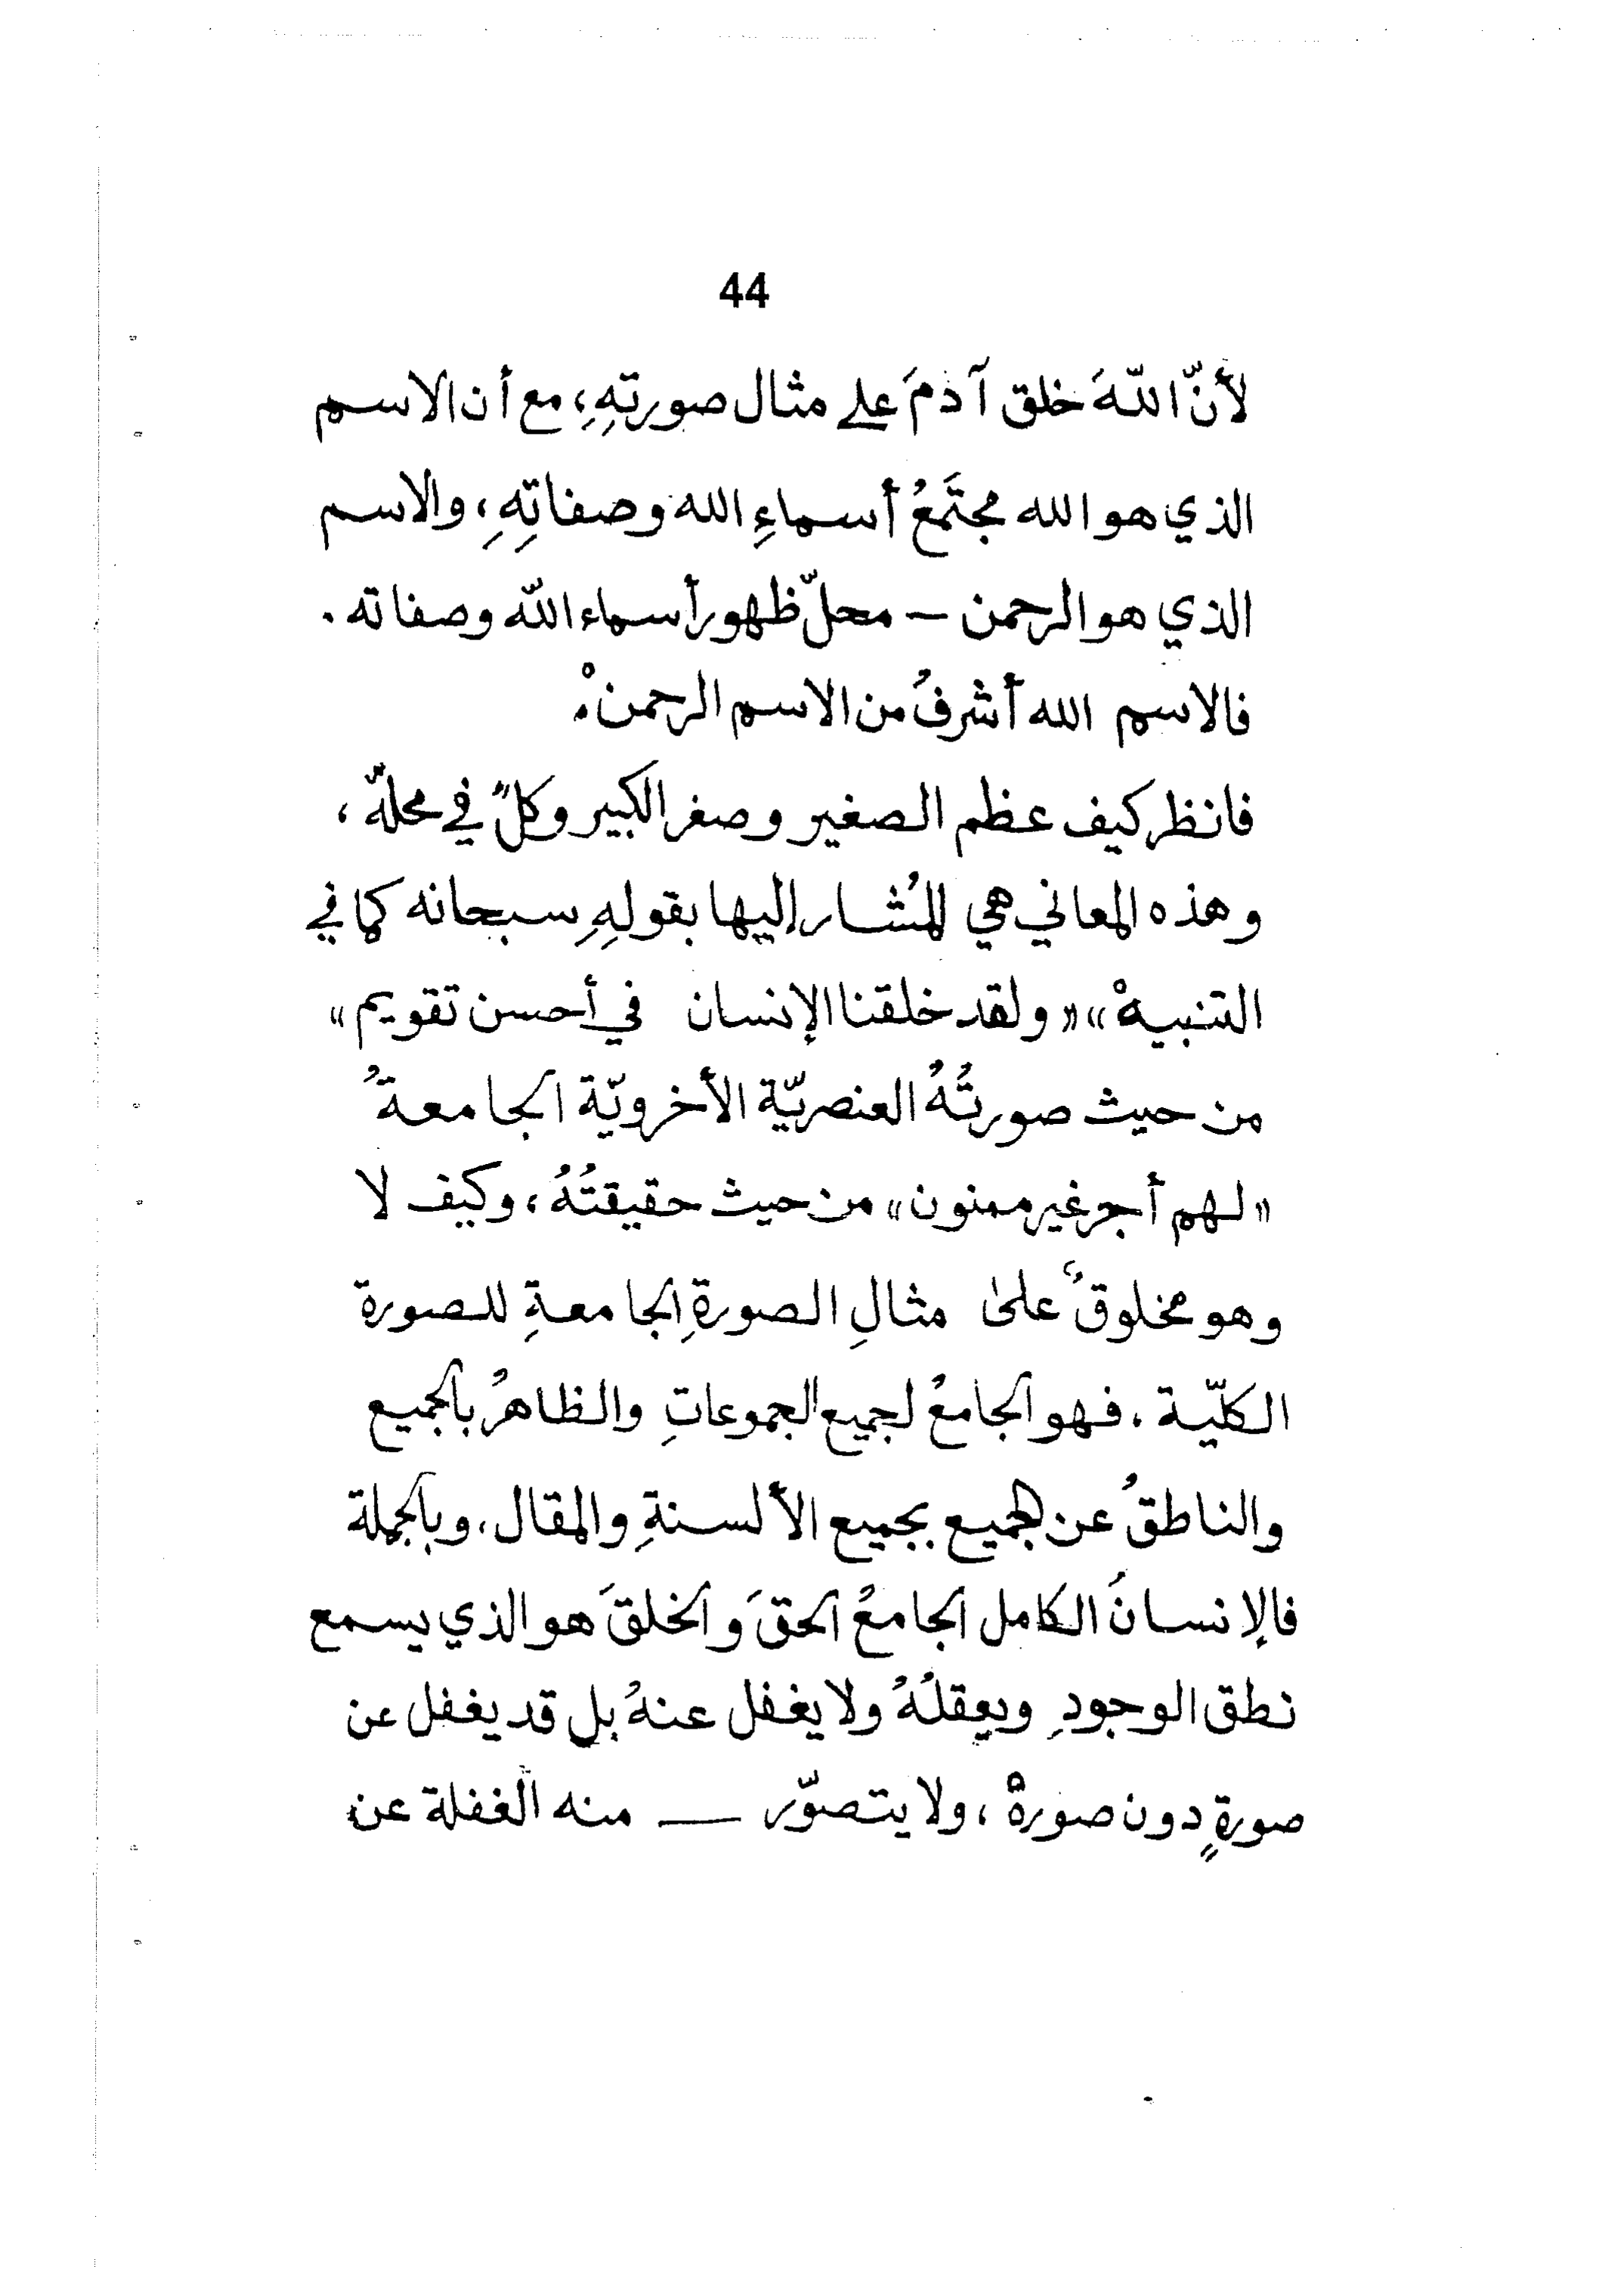 44
لأنّ اللّهَ خلق آدمَ على مثال صورتهِ، مع أن الاسم
الذي هو الله مجتَمعُ أسماءِ الله وصفاتِهِ، والاسم
الذي هو الرحمن – محلّ ظهور أسماء اللّه وصفاته .
فالاسم الله أشرفُ من الاسم الرحمنْ.
فانظر كيف عظم الصغير وصغر الكبير وكلٌ في محلهّ ،
وهذه المعاني هي المُشار إليها بقولهِ سبحانه كما في
التنبيهْ» «ولقد خلقنا الإنسان في أحسن تقويم»
من حيث صورتُهُ العنصريّة الأخرويّة الجامعةُ
«لهم أجر غير ممنون» من حيث حقيقتُهُ، وكيف لا
وهو مخلوقٌ على مثالِ الصورةِ الجامعةِ للصورة
الكلّية . فهو الجامعُ لجميع المجموعاتِ والظاهرُ بالجميع
والناطقُ عن الجميع بجميع الألسنةِ والمقال. وبالجملة
فالإنسانُ الكامل الجامعُ الحقَ والخلقَ هو الذي يسمع
نطق الوجودِ ويعقلُهُ ولا يغفل عنهُ بل قد يغفل عن
صورةٍ دون صورةْ ، ولا يتصوّر — منه الغفلة عن